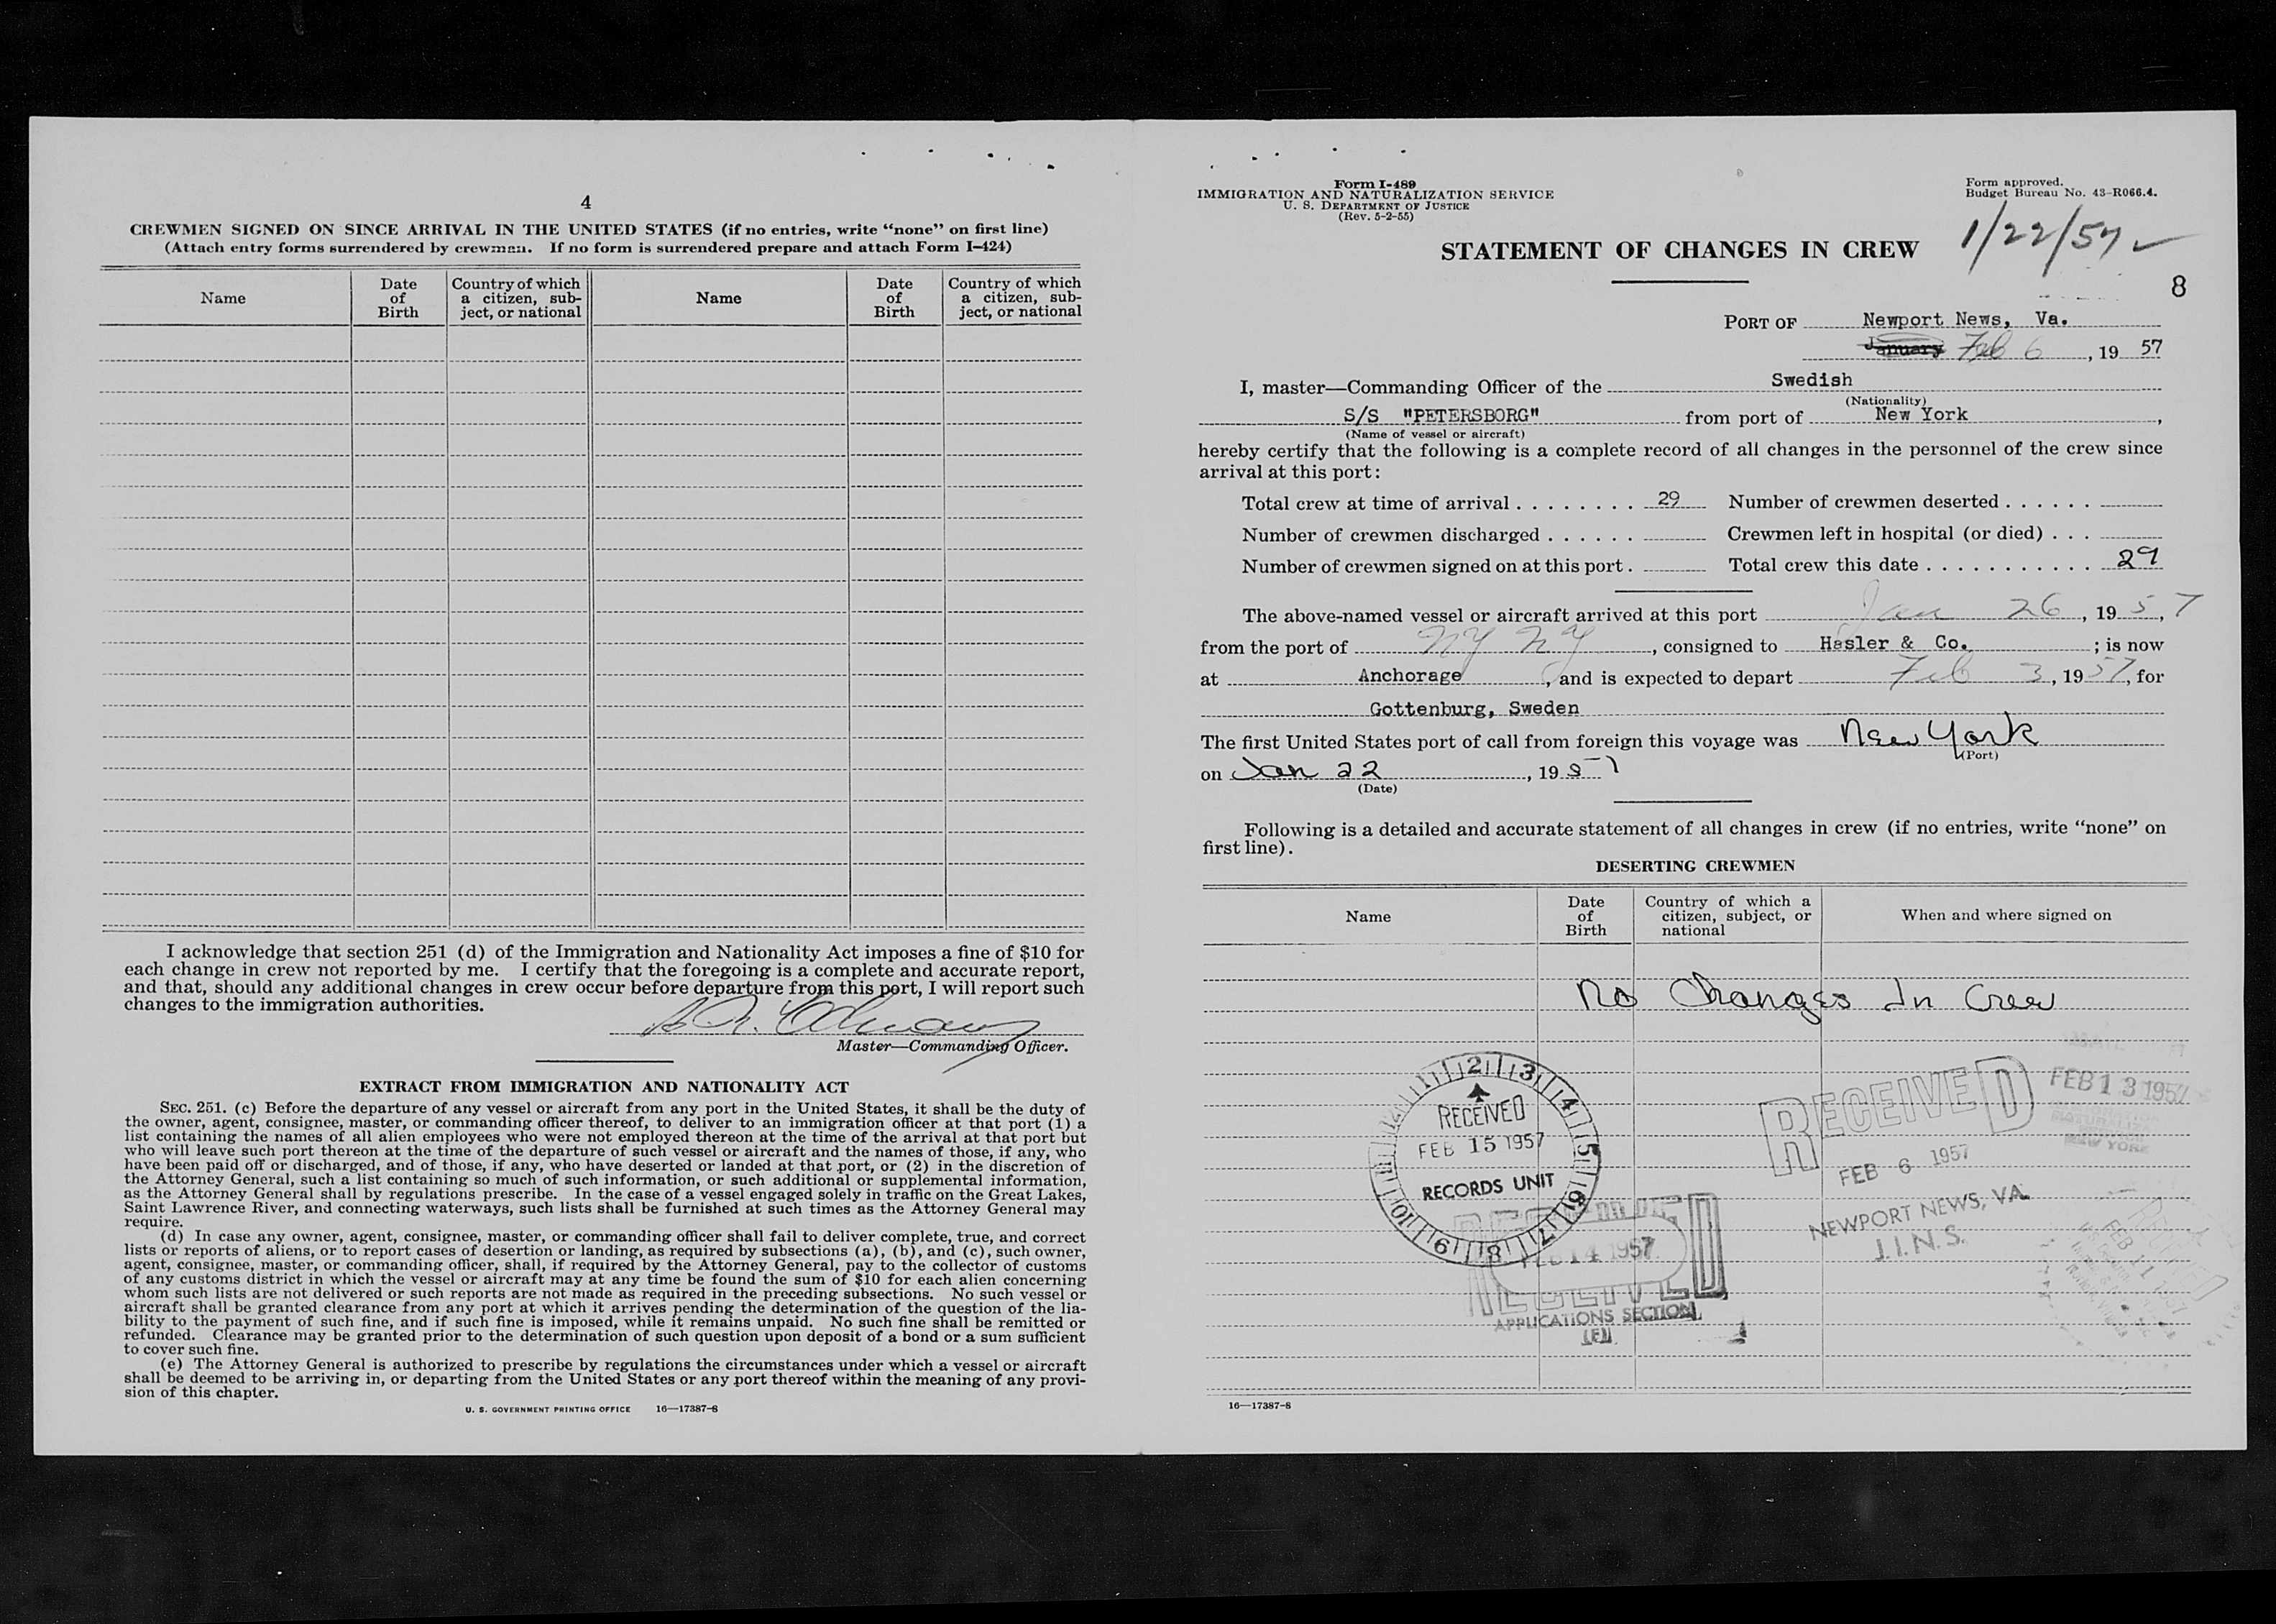 4
CREWMEN SIGNED ON SINCE ARRIVAL IN THE UNITED STATES (if no entries, write “none” on first line)
(Attach entry forms surrendered by crewman. If no form is surrendered prepare and attach Form I–424)
Name
Date of Birth
Country of which a citizen, subject, or national
Name
Date of Birth
Country of which a citizen, subject, or national
I acknowledge that section 251 (d) of the Immigration and Nationality Act imposes a fine of $10 for
each change in crew not reported by me. I certify that the foregoing is a complete and accurate report,
and that, should any additional changes in crew occur before departure from this port, I will report such
changes to the immigration authorities.
Master—Commanding Officer.
EXTRACT FROM IMMIGRATION AND NATIONALITY ACT
SEC. 251. (c) Before the departure of any vessel or aircraft from any port in the United States, it shall be the duty of
the owner, agent, consignee, master, or commanding officer thereof, to deliver to an immigration officer at that port (1) a
list containing the names of all alien employees who were not employed thereon at the time of the arrival at that port but
who will leave such port thereon at the time of the departure of such vessel or aircraft and the names of those, if any, who
have been paid off or discharged, and of those, if any, who have deserted or landed at that port, or (2) in the discretion of
the Attorney General, such a list containing so much of such information, or such additional or supplemental information,
as the Attorney General shall by regulations prescribe. In the case of a vessel engaged solely in traffic on the Great Lakes,
Saint Lawrence River, and connecting waterways, such lists shall be furnished at such times as the Attorney General may
require.
(d) In case any owner, agent, consignee, master, or commanding officer shall fail to deliver complete, true, and correct
lists or reports of aliens, or to report cases of desertion or landing, as required by subsections (a), (b), and (c), such owner,
agent, consignee, master, or commanding officer, shall, if required by the Attorney General, pay to the collector of customs
of any customs district in which the vessel or aircraft may at any time be found the sum of $10 for each alien concerning
whom such lists are not delivered or such reports are not made as required in the preceding subsections. No such vessel or
aircraft shall be granted clearance from any port at which it arrives pending the determination of the question of the lia-
bility to the payment of such fine, and if such fine is imposed, while it remains unpaid. No such fine shall be remitted or
refunded. Clearance may be granted prior to the determination of such question upon deposit of a bond or a sum sufficient
to cover such fine.
(e) The Attorney General is authorized to prescribe by regulations the circumstances under which a vessel or aircraft
shall be deemed to be arriving in, or departing from the United States or any port thereof within the meaning of any provi-
sion of this chapter.
U. S. GOVERNMENT PRINTING OFFICE 16—17387-8
Form I-489
IMMIGRATION AND NATURALIZATION SERVICE
U. S. DEPARTMENT OF JUSTICE
(Rev. 5-2-55)
Form approved.
Budget Bureau No. 43-R066.4.
1/22/57
STATEMENT OF CHANGES IN CREW
8
PORT OF Newport News, Va.
January Feb 6, 19 57
I, master—Commanding Officer of the Swedish
(Nationality)
S/S "PETERSBORG" from port of New York,
(Name of vessel or aircraft)
hereby certify that the following is a complete record of all changes in the personnel of the crew since
arrival at this port:
Total crew at time of arrival . . . . . . . . 29 Number of crewmen deserted . . . . . .
Number of crewmen discharged . . . . . . Crewmen left in hospital (or died) . . .
Number of crewmen signed on at this port . Total crew this date . . . . . . . . . . . 29
The above-named vessel or aircraft arrived at this port Jan 26, 19 57,
from the port of NY NY, consigned to Hasler & Co. ; is now
at Anchorage, and is expected to depart Feb 3, 19 57, for
Gottenburg, Sweden
The first United States port of call from foreign this voyage was New York
(Port)
on Jan 22, 19 57
(Date)
Following is a detailed and accurate statement of all changes in crew (if no entries, write “none” on
first line).
DESERTING CREWMEN
Name
Date of Birth
Country of which a citizen, subject, or national
When and where signed on
No Changes In Crew
RECEIVED
FEB 15 1957
RECORDS UNIT
RECEIVED
FEB 6 1957
NEWPORT NEWS, VA.
I.N.S.
FEB 13 1957
NEW YORK
FEB 14 1957
RECEIVED
APPLICATIONS SECTION
FEB 11 1957
16—17387-8